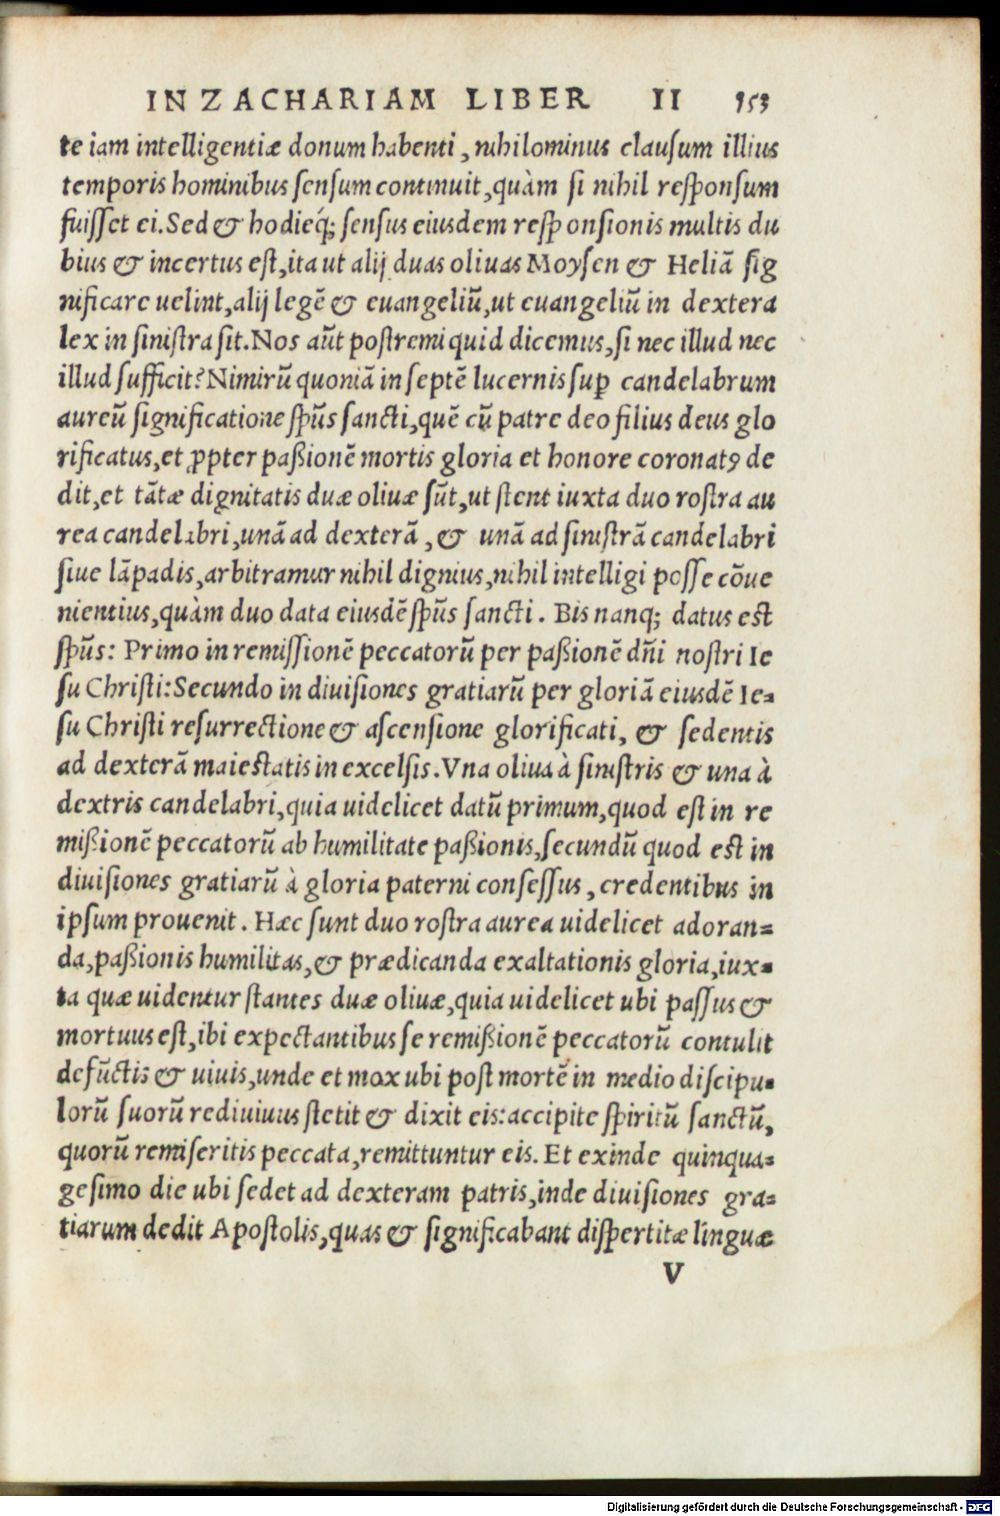 IN ZACHARIAM LIBER II 153
te iam intelligentiæ donum habenti, nihilominus clausum illius
temporis hominibus sensum continuit, quàm si nihil responsum
fuisset ei. Sed & hodieq́; sensus eiusdem responsionis multis du
bius & incertus est, ita ut alij duas oliuas Moysen & Heliā sig
nificare uelint, alij legē & euangeliū, ut euangeliū in dextera
lex in sinistra sit. Nos aūt postremi quid dicemus, si nec illud nec
illud sufficit? Nimirū quoniā in septē lucernis sup̱ candelabrum
aureū significatione sp̄us sancti, quē cū patre deo filius deus glo
rificatus, et ꝓpter paßionē mortis gloria et honore coronatꝯ de
dit, et tātæ dignitatis duæ oliuæ sūt, ut stent iuxta duo rostra au
rea candelabri, unā ad dexterā, & unā ad sinistrā candelabri
siue lāpadis, arbitramur nihil dignius, nihil intelligi posse cōue
nientius, quàm duo data eiusdē sp̄us sancti. Bis nanq; datus est
sp̄us: Primo in remissionē peccatorū per paßionē dn̄i nostri Ie
su Christi: Secundo in diuisiones gratiarū per gloriā eiusdē Ie-
su Christi resurrectione & ascensione glorificati, & sedentis
ad dexterā maiestatis in excelsis. Vna oliua à sinistris & una à
dextris candelabri, quia uidelicet datū primum, quod est in re
mißionē peccatorū ab humilitate paßionis, secundū quod est in
diuisiones gratiarū à gloria paterni consessus, credentibus in
ipsum prouenit. Hæc sunt duo rostra aurea uidelicet adoran-
da, paßionis humilitas, & prædicanda exaltationis gloria, iux-
ta quæ uidentur stantes duæ oliuæ, quia uidelicet ubi passus &
mortuus est, ibi expectantibus se remißionē peccatorū contulit
defūctis & uiuis, unde et mox ubi post mortē in medio discipu-
lorū suorū rediuiuus stetit & dixit eis: accipite spiritū sanctū,
quorū remiseritis peccata, remittuntur eis. Et exinde quinqua-
gesimo die ubi sedet ad dexteram patris, inde diuisiones gra-
tiarum dedit Apostolis, quas & significabant dispertitæ linguæ
V
Digitalisierung gefördert durch die Deutsche Forschungsgemeinschaft - DFG